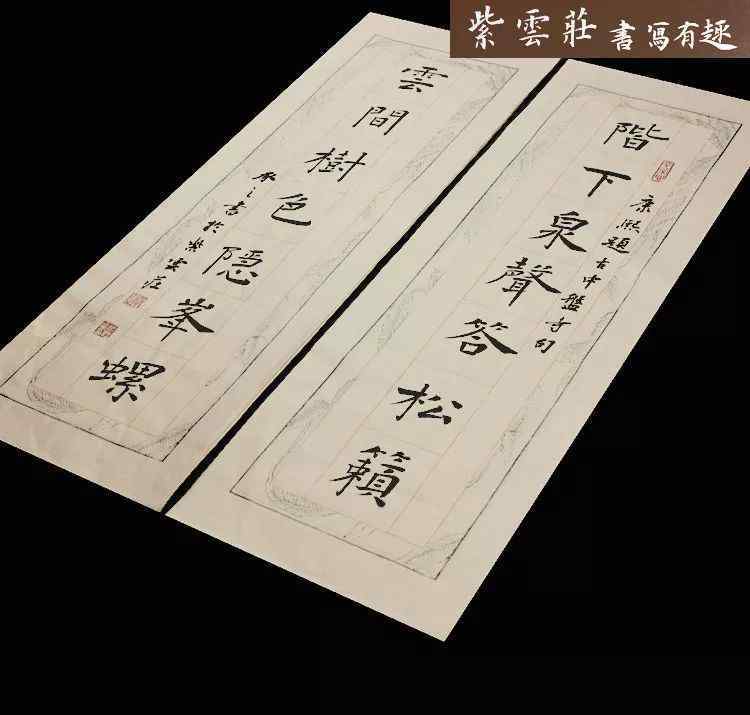 紫雲莊 書寫有趣
階下泉聲答松籟
康熙題古中盤寺句
雲間樹色隱峯螺
書於紫雲莊